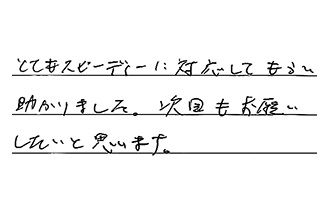 とてもスピーディーに対応してもらい
助かりました。次回もお願い
したいと思います。